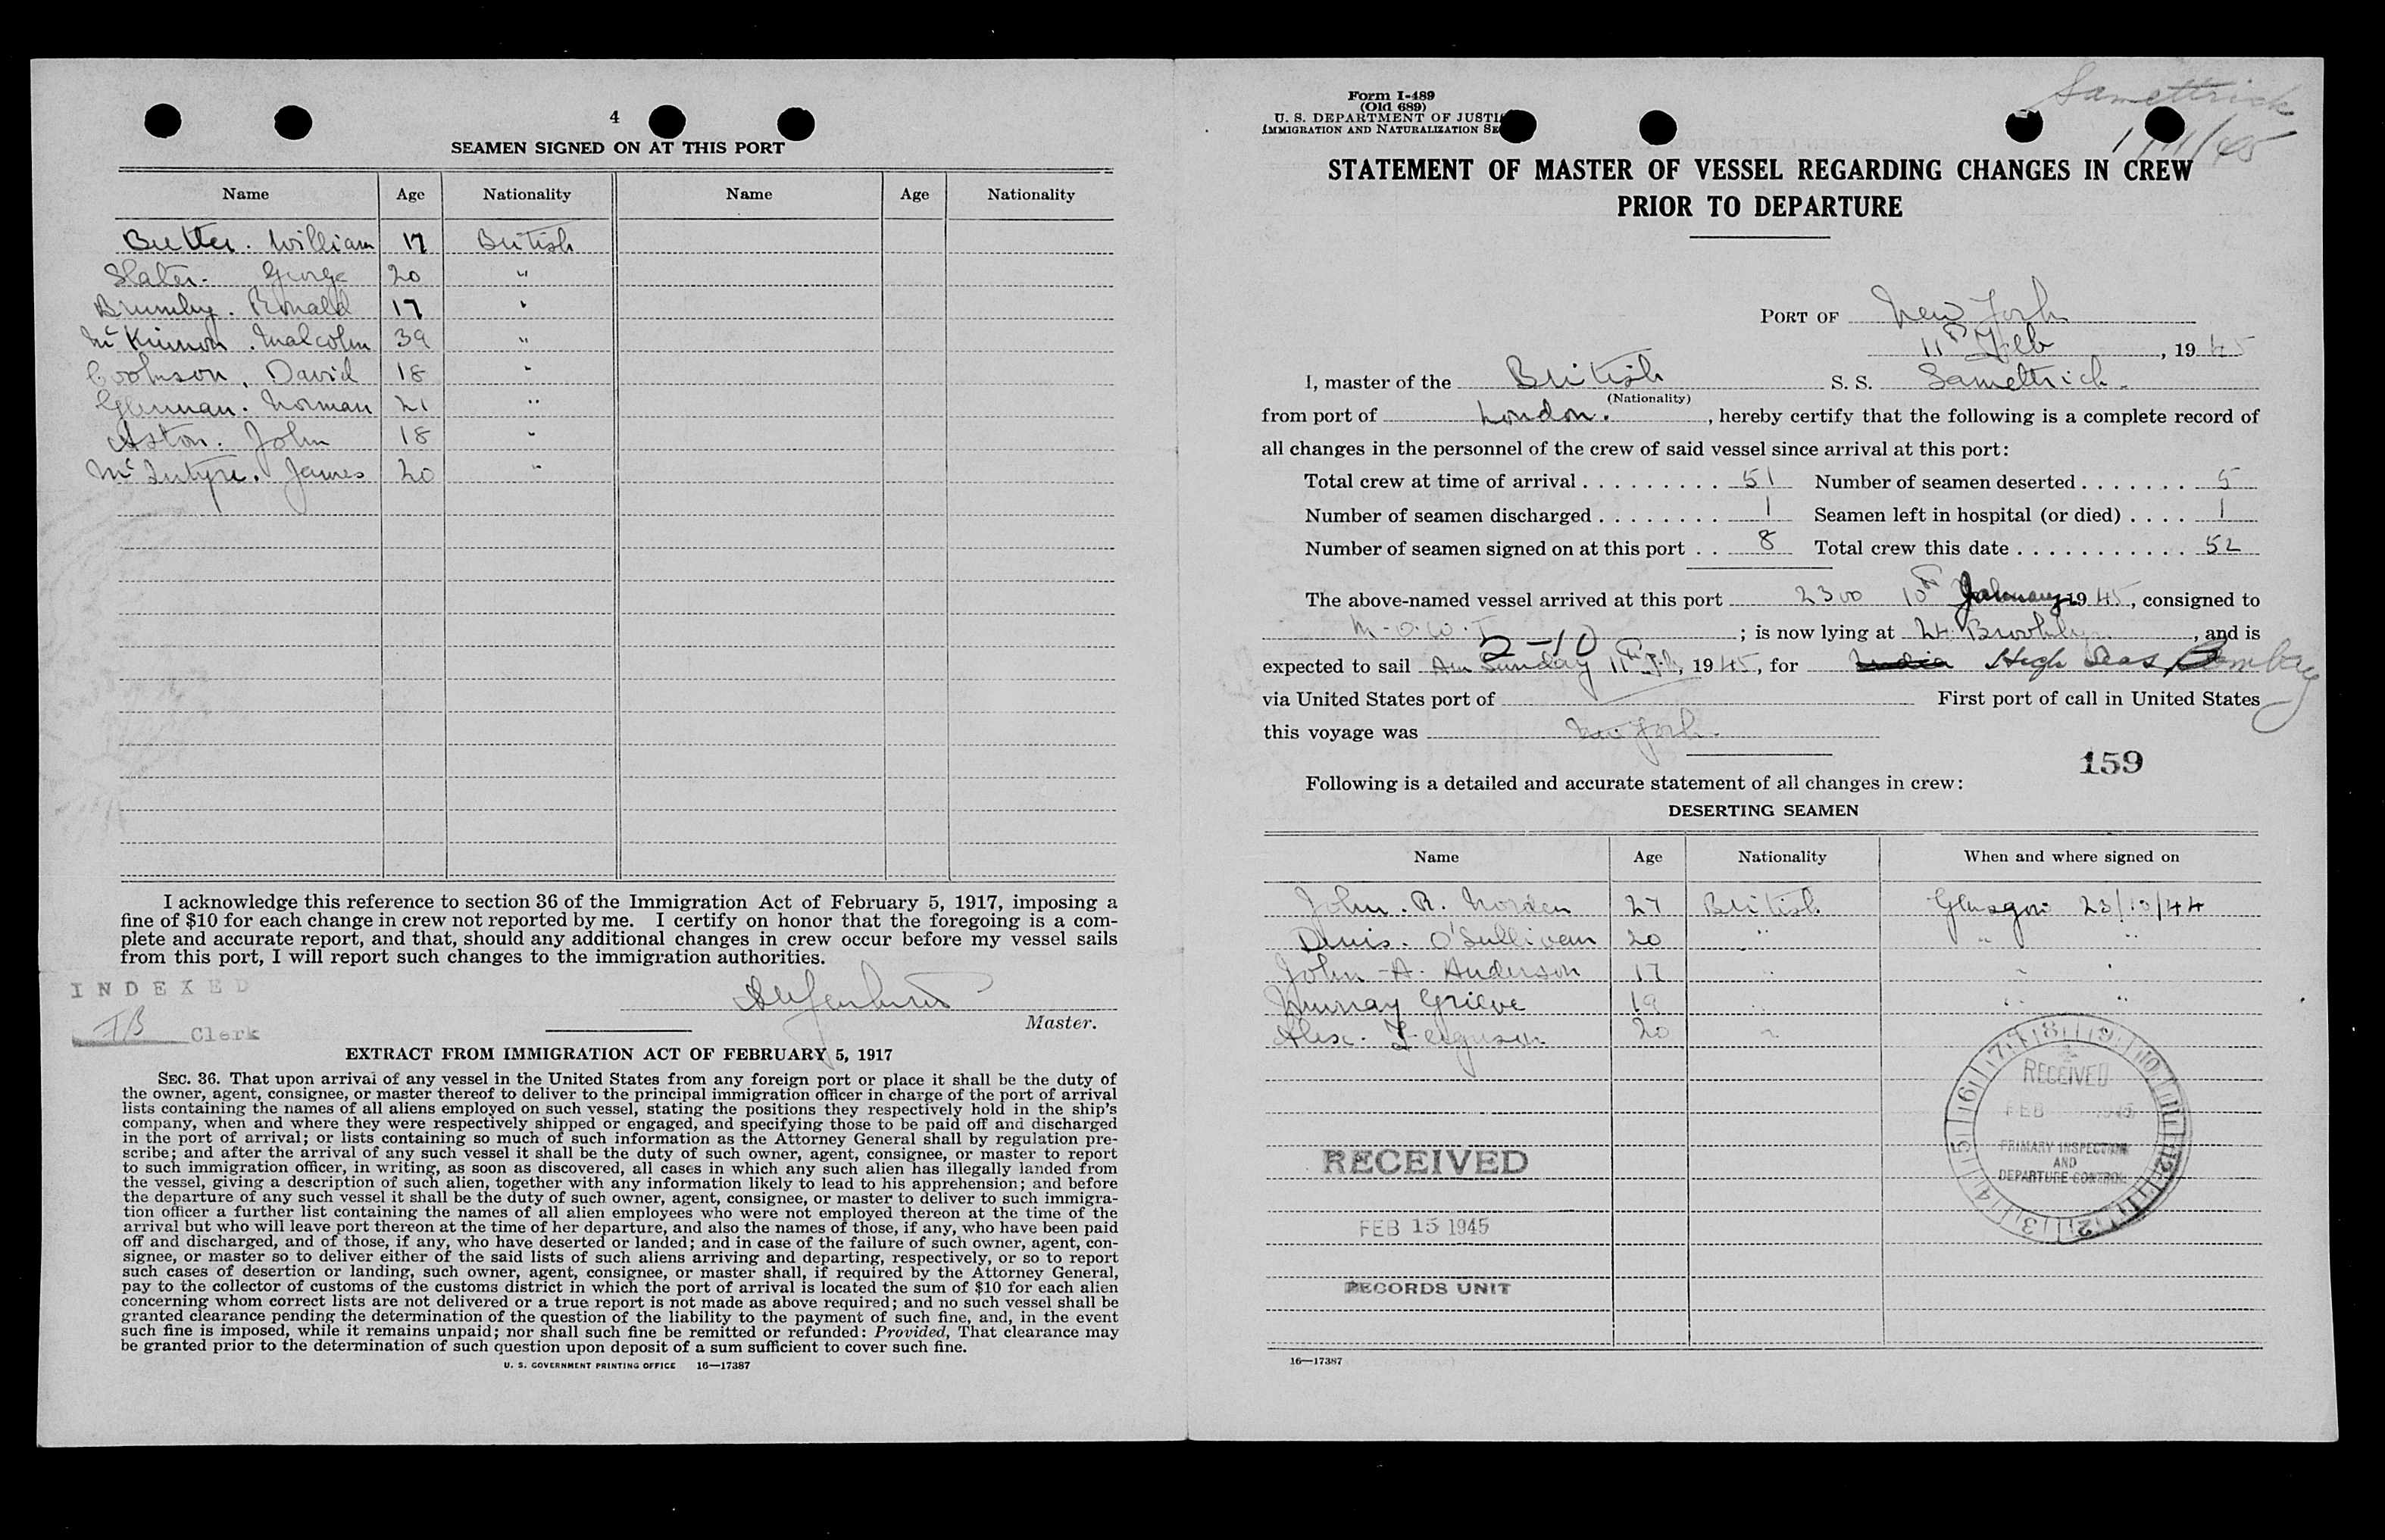 4
SEAMEN SIGNED ON AT THIS PORT
Name Age Nationality Name Age Nationality
Butter. William 17 British
Slater. George 20 "
Brumby. Ronald 17 "
McKinnon. Malcolm 39 "
Cookson. David 18 "
Glennan. Norman 21 "
Aston. John 18 "
McIntyre. James 20 "
I acknowledge this reference to section 36 of the Immigration Act of February 5, 1917, imposing a
fine of $10 for each change in crew not reported by me. I certify on honor that the foregoing is a com-
plete and accurate report, and that, should any additional changes in crew occur before my vessel sails
from this port, I will report such changes to the immigration authorities.
INDEXED
Master.
JB Clerk
EXTRACT FROM IMMIGRATION ACT OF FEBRUARY 5, 1917
SEC. 36. That upon arrival of any vessel in the United States from any foreign port or place it shall be the duty of
the owner, agent, consignee, or master thereof to deliver to the principal immigration officer in charge of the port of arrival
lists containing the names of all aliens employed on such vessel, stating the positions they respectively hold in the ship's
company, when and where they were respectively shipped or engaged, and specifying those to be paid off and discharged
in the port of arrival; or lists containing so much of such information as the Attorney General shall by regulation pre-
scribe; and after the arrival of any such vessel it shall be the duty of such owner, agent, consignee, or master to report
to such immigration officer, in writing, as soon as discovered, all cases in which any such alien has illegally landed from
the vessel, giving a description of such alien, together with any information likely to lead to his apprehension; and before
the departure of any such vessel it shall be the duty of such owner, agent, consignee, or master to deliver to such immigra-
tion officer a further list containing the names of all alien employees who were not employed thereon at the time of the
arrival but who will leave port thereon at the time of her departure, and also the names of those, if any, who have been paid
off and discharged, and of those, if any, who have deserted or landed; and in case of the failure of such owner, agent, con-
signee, or master so to deliver either of the said lists of such aliens arriving and departing, respectively, or so to report
such cases of desertion or landing, such owner, agent, consignee, or master shall, if required by the Attorney General,
pay to the collector of customs of the customs district in which the port of arrival is located the sum of $10 for each alien
concerning whom correct lists are not delivered or a true report is not made as above required; and no such vessel shall be
granted clearance pending the determination of the question of the liability to the payment of such fine, and, in the event
such fine is imposed, while it remains unpaid; nor shall such fine be remitted or refunded: Provided, That clearance may
be granted prior to the determination of such question upon deposit of a sum sufficient to cover such fine.
U. S. GOVERNMENT PRINTING OFFICE 16—17387
Samettrick
Form I-489
(Old 689)
U. S. DEPARTMENT OF JUSTI
IMMIGRATION AND NATURALIZATION SE
STATEMENT OF MASTER OF VESSEL REGARDING CHANGES IN CREW
PRIOR TO DEPARTURE
PORT OF New York
11th Feb, 1945
I, master of the British S. S. Samettrick.
(Nationality)
from port of London., hereby certify that the following is a complete record of
all changes in the personnel of the crew of said vessel since arrival at this port:
Total crew at time of arrival 51 Number of seamen deserted 5
Number of seamen discharged 1 Seamen left in hospital (or died) 1
Number of seamen signed on at this port 8 Total crew this date 52
The above-named vessel arrived at this port 2300 10th January 1945, consigned to
M.O.W.T; is now lying at 24 Brooklyn, and is
2-10
expected to sail Am Sunday 11th Feb, 1945, for India High Seas, Bombay
via United States port of First port of call in United States
this voyage was New York.
159
Following is a detailed and accurate statement of all changes in crew:
DESERTING SEAMEN
Name Age Nationality When and where signed on
John. R. Norden 27 British. Glasgow 23/10/44
Denis. O'Sullivan 20 " " "
John A. Anderson 17 " " "
Murray Grieve 19 " " "
Alex. Ferguson 20 "
RECEIVED
FEB 1945
PRIMARY INSPECTION
AND
DEPARTURE CONTROL
RECEIVED
FEB 15 1945
RECORDS UNIT
16—17387